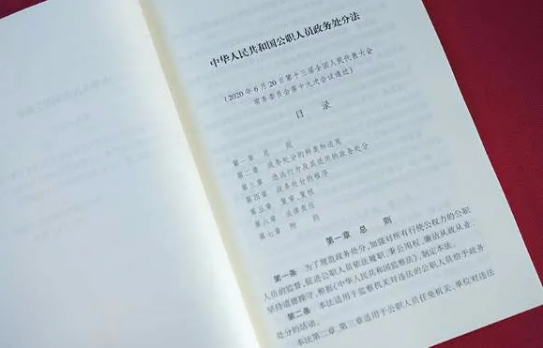 中华人民共和国公职人员政务处分法
(2020年6月20日第十三届全国人民代表大会
常务委员会第十九次会议通过)
目 录
第一章 总 则
第二章 政务处分的种类和适用
第三章 违法行为及其适用的政务处分
第四章 政务处分的程序
第五章 复审、复核
第六章 法律责任
第七章 附 则
第一章 总 则
第一条 为了规范政务处分,加强对所有行使公权力的公职
人员的监督,促进公职人员依法履职、秉公用权、廉洁从政从业、
坚持道德操守,根据《中华人民共和国监察法》,制定本法。
第二条 本法适用于监察机关对违法的公职人员给予政务
处分的活动。
本法第二章、第三章适用于公职人员任免机关、单位对违法